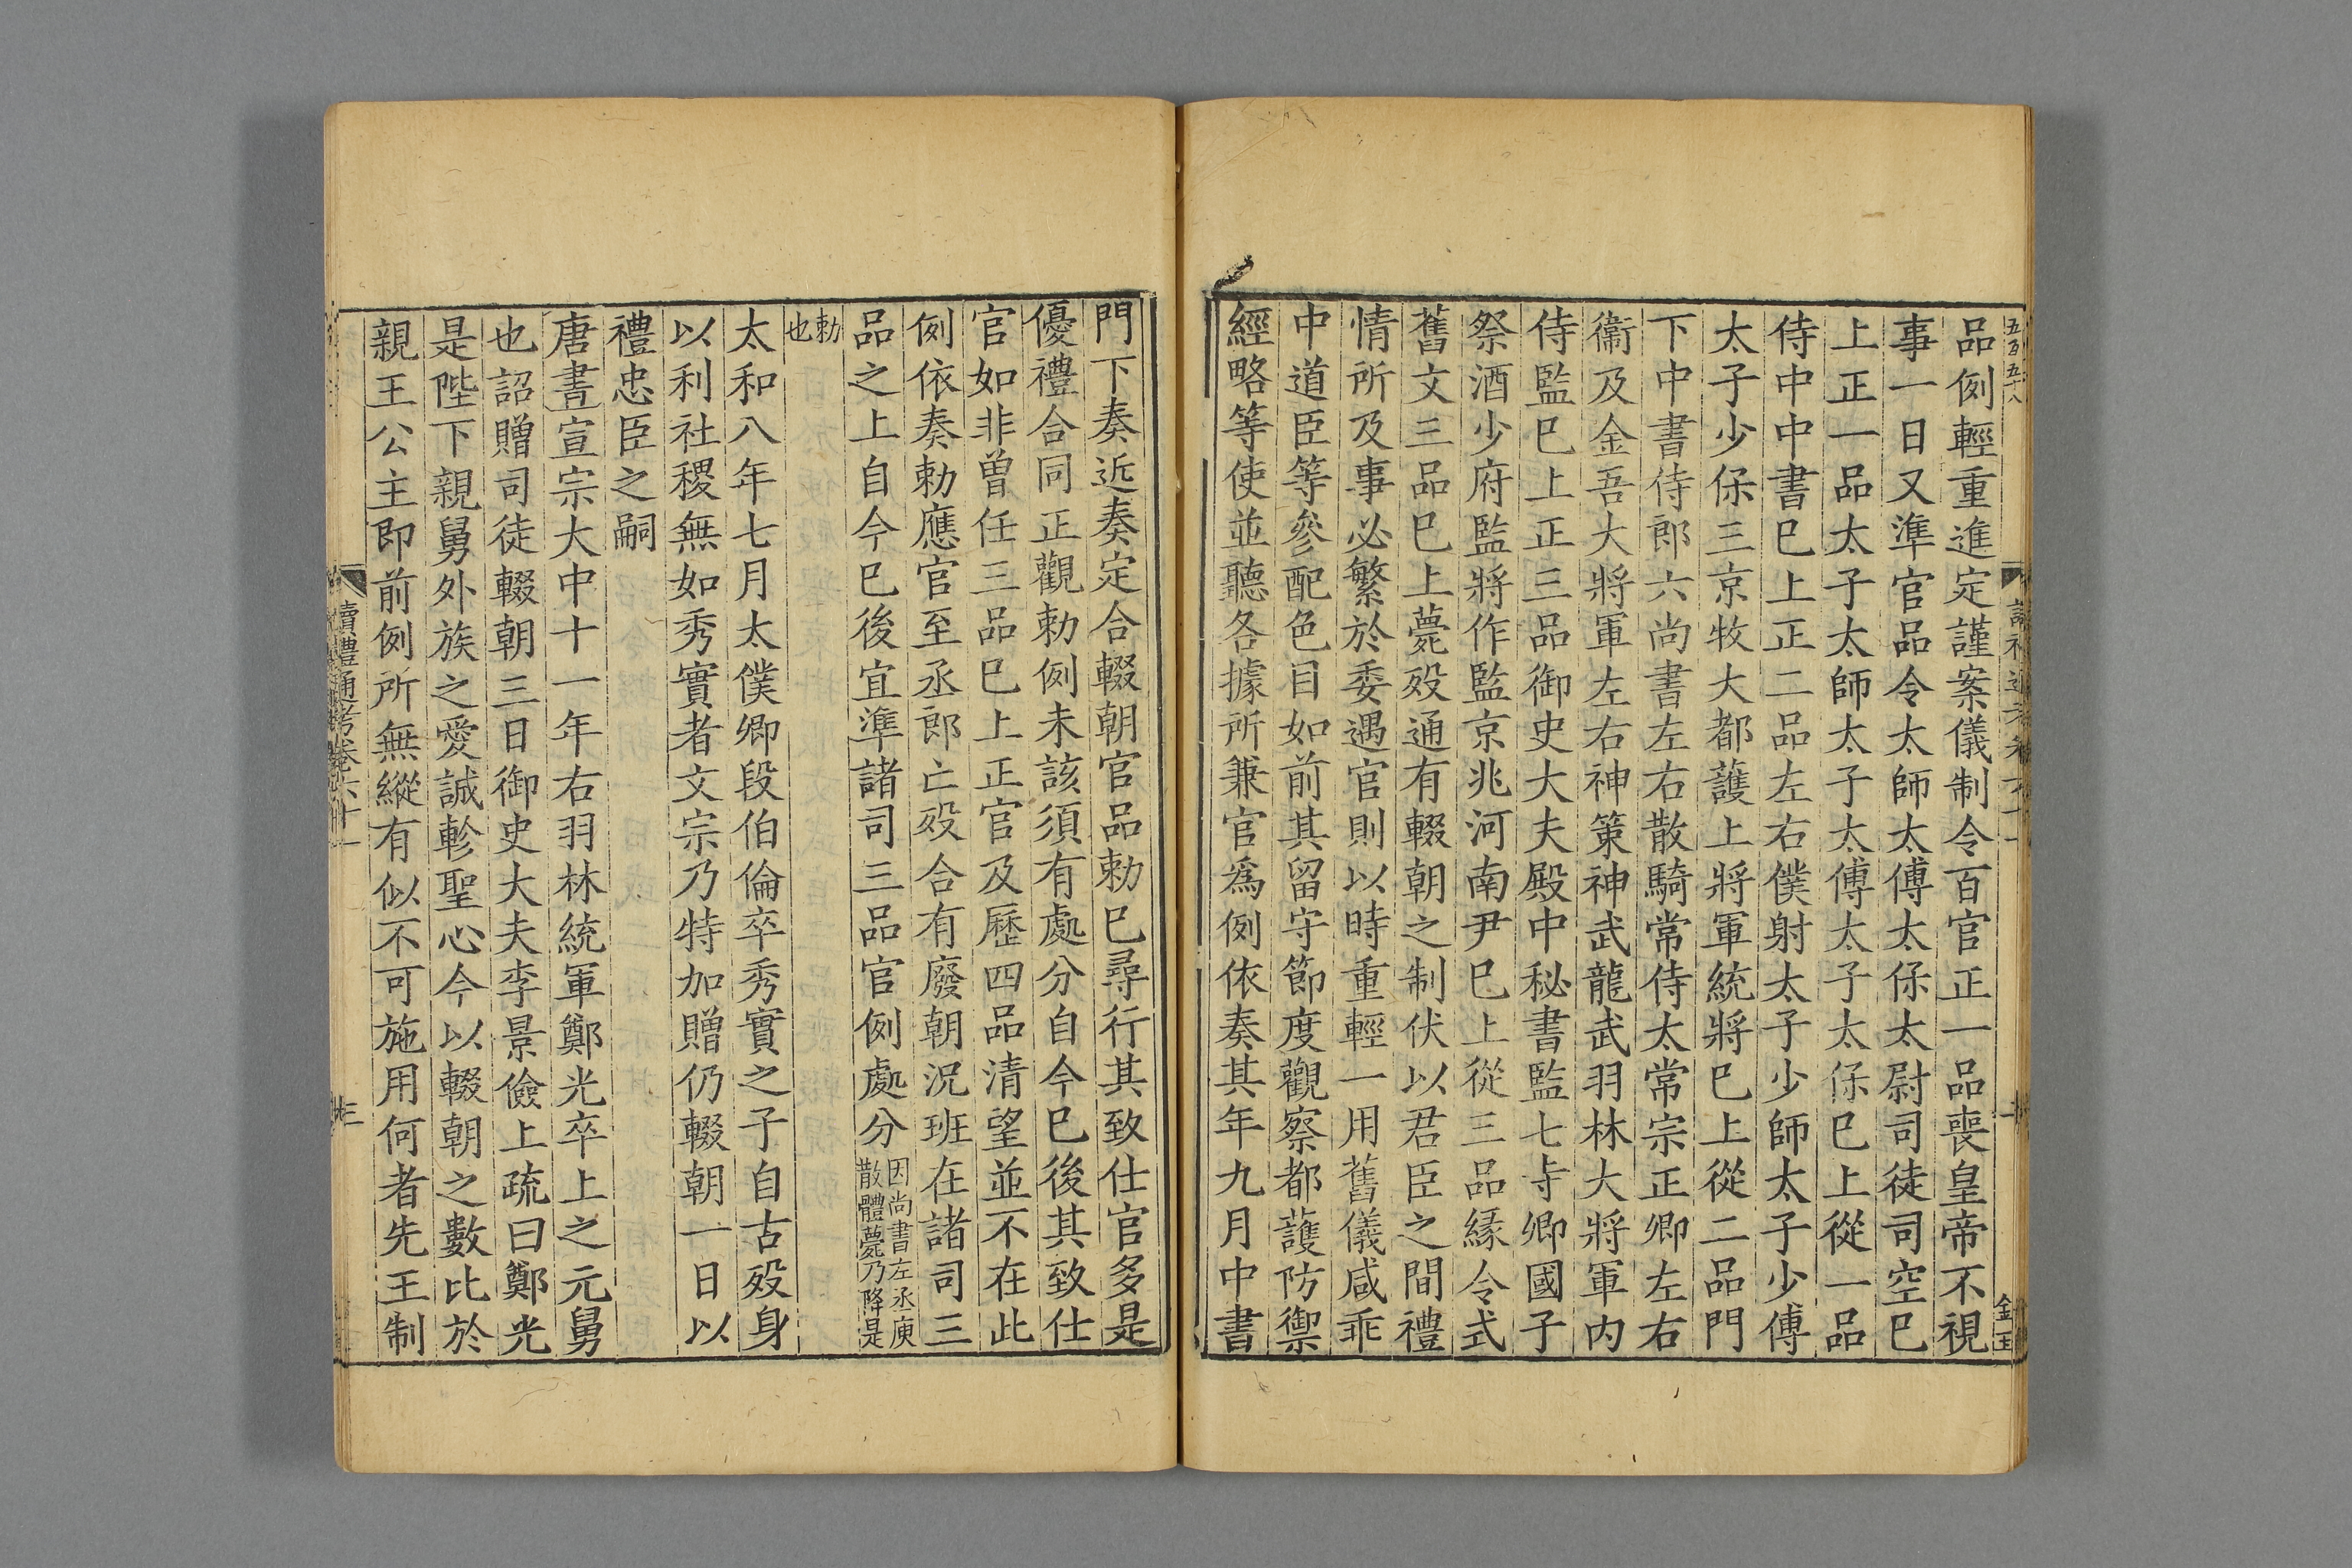 五百五十八
品例輕重進定謹案儀制令百官正一品喪皇帝不視
事一日又準官品令太師太傅太保太尉司徒司空巳
上正一品太子太師太子太傅太子太保巳上從一品
侍中中書巳上正二品左右僕射太子少師太子少傅
太子少保三京牧大都護上將軍統將巳上從二品門
下中書侍郎六尚書左右散騎常侍太常宗正卿左右
衞及金吾大將軍左右神策神武龍武羽林大將軍內
侍監巳上正三品御史大夫殿中秘書監七寺卿國子
祭酒少府監將作監京兆河南尹巳上從三品縁令式
舊文三品巳上薨歿通有輟朝之制伏以君臣之間禮
情所及事必繁於委遇官則以時重輕一用舊儀咸乖
中道臣等參配色目如前其留守節度觀察都護防禦
經略等使並聽各據所兼官爲例依奏其年九月中書
門下奏近奏定合輟朝官品勅巳尋行其致仕官多是
優禮合同正觀勅例未該須有處分自今巳後其致仕
官如非曾任三品巳上正官及歷四品清望並不在此
例依奏勅應官至丞郎亡歿合有廢朝況班在諸司三
品之上自今巳後宜準諸司三品官例處分因尚書左丞庾
散體薨乃降是
勅
也
太和八年七月太僕卿段伯倫卒秀實之子自古歿身
以利社稷無如秀實者文宗乃特加贈仍輟朝一日以
禮忠臣之嗣
唐書宣宗大中十一年右羽林統軍鄭光卒上之元舅
也詔贈司徒輟朝三日御史大夫李景儉上疏曰鄭光
是陛下親舅外族之愛誠軫聖心今以輟朝之數比於
親王公主即前例所無縱有似不可施用何者先王制
讀禮通考卷六十一